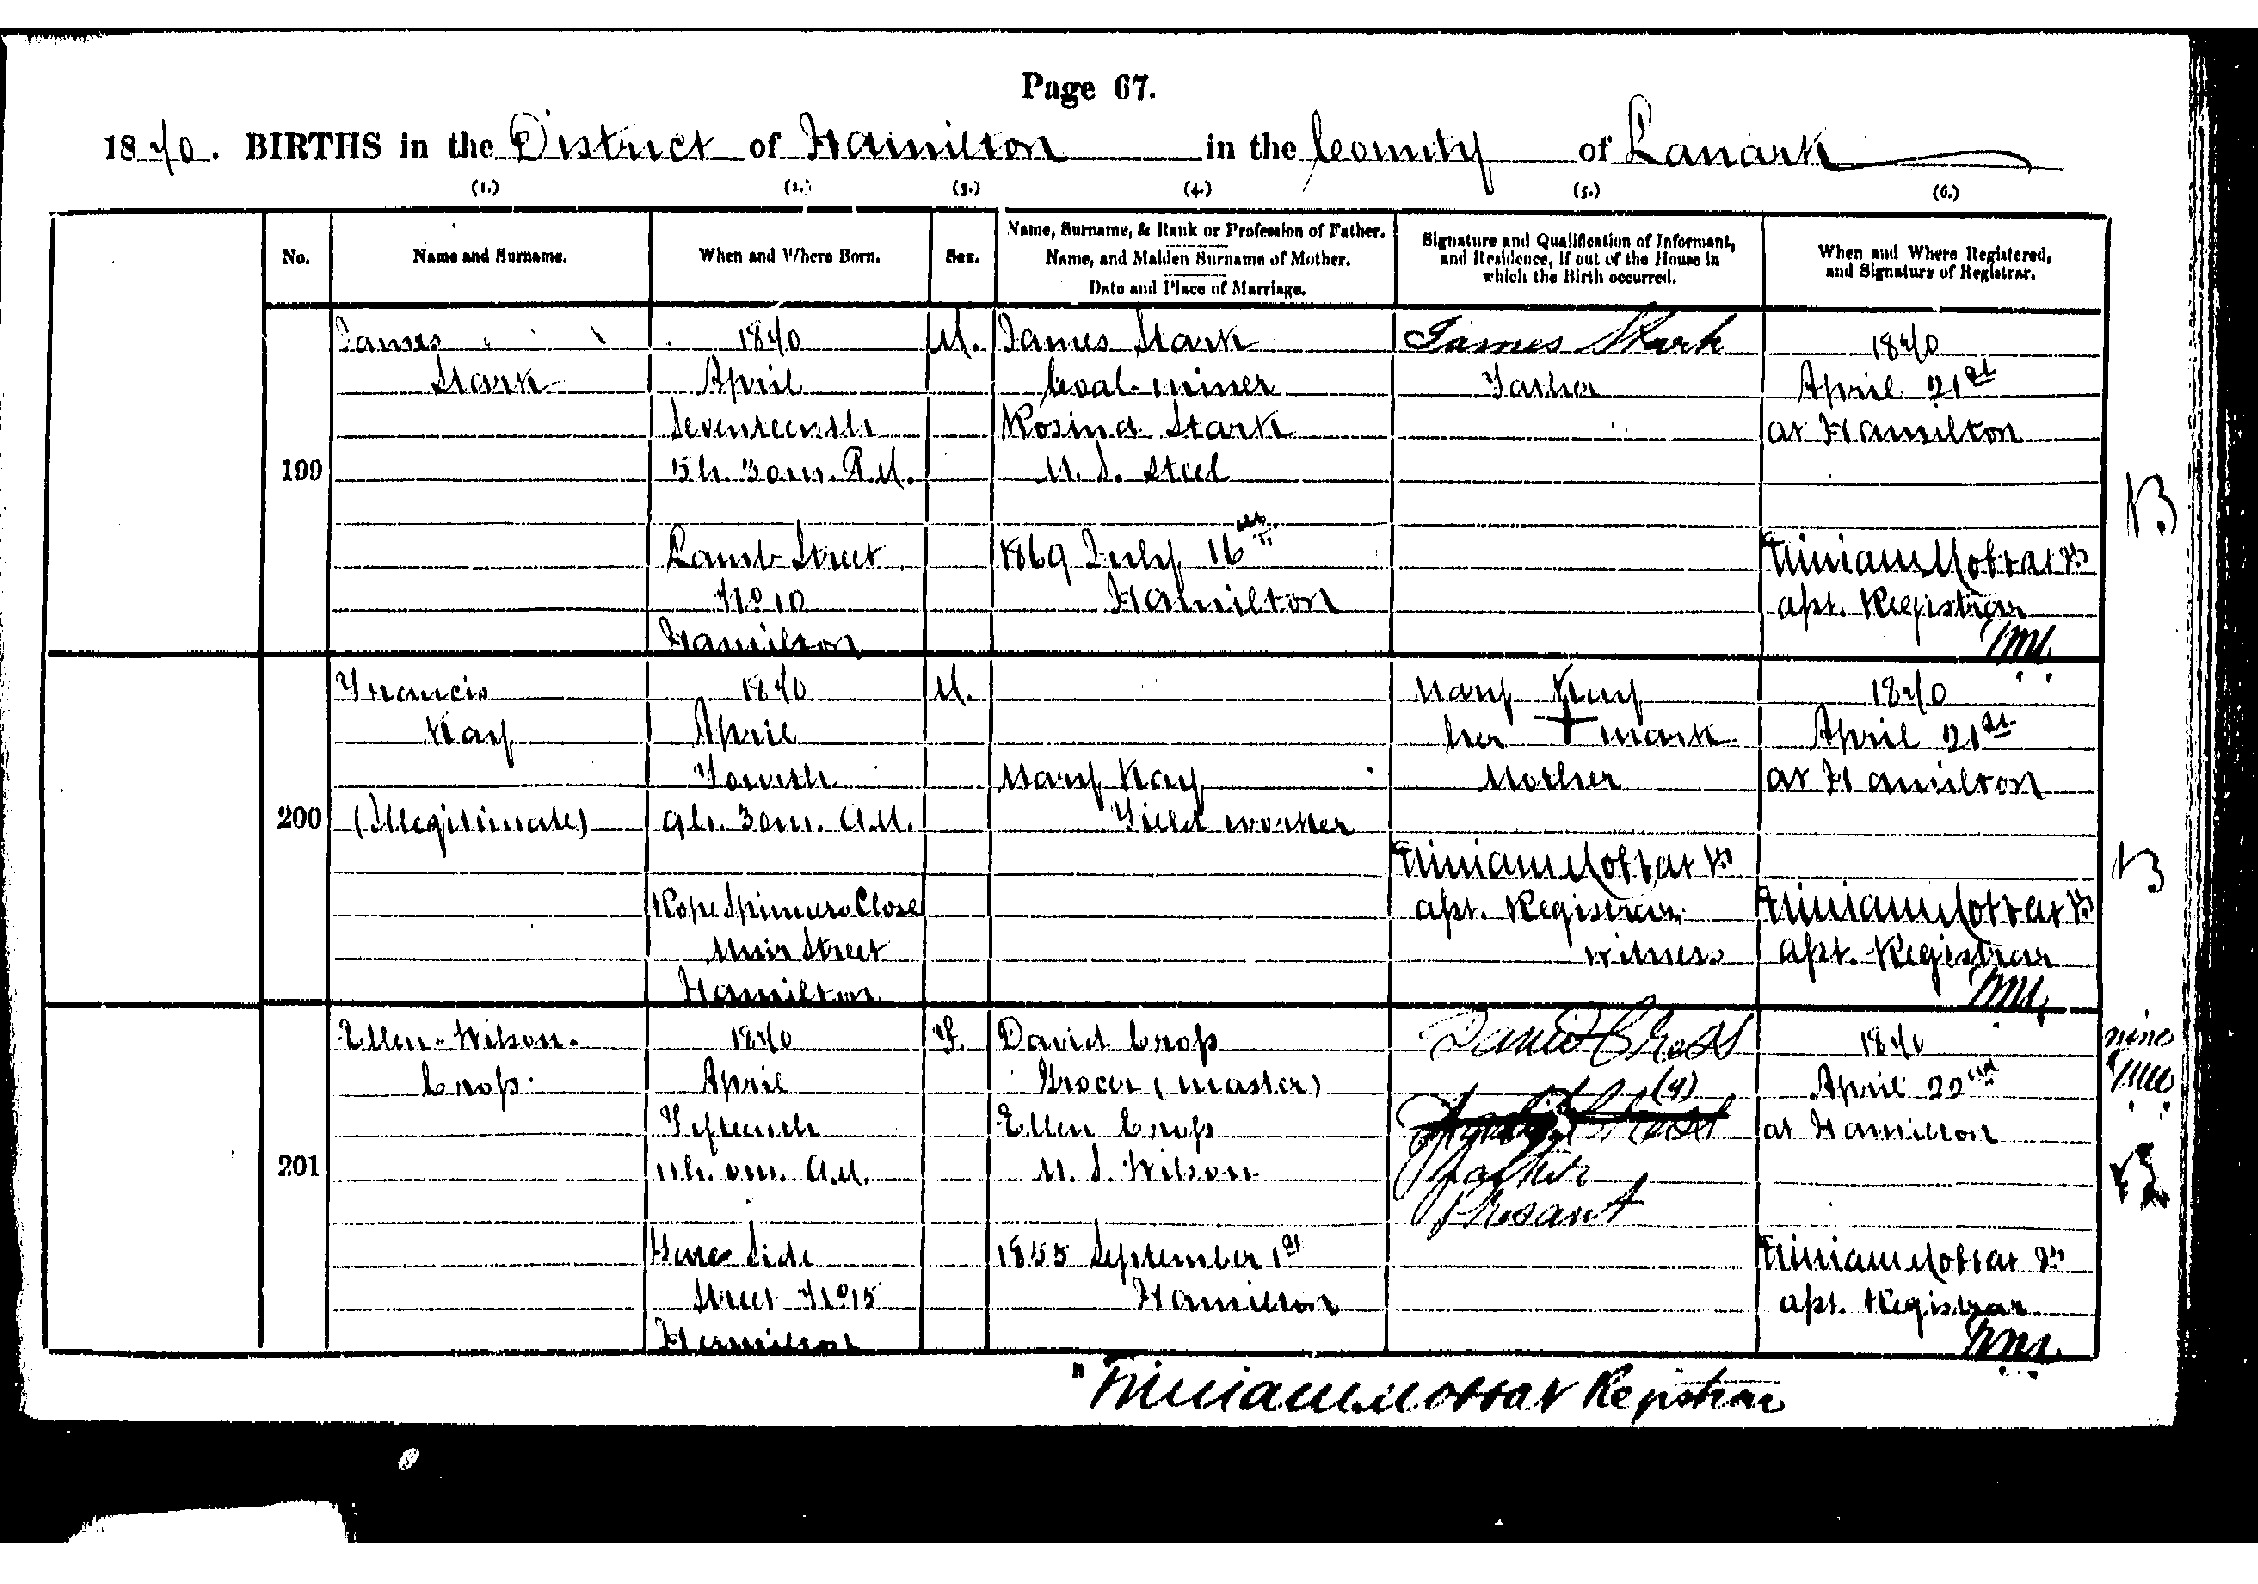 Page 67.
1870. BIRTHS in the District of Hamilton in the County of Lanark
(1.) (2.) (3.) (4.) (5.) (6.)
No. Name and Surname. When and Where Born. Sex. Name, Surname, & Rank or Profession of Father. Name, and Maiden Surname of Mother. Date and Place of Marriage. Signature and Qualification of Informant, and Residence, if out of the House in which the Birth occurred. When and Where Registered, and Signature of Registrar.
199
James
Stark
1870
April
Seventeenth
5h. 30m. P.M.
Lamb Street
No 10
Hamilton
M.
James Stark
Coal-miner
Rosina Stark
M. S. Steel
1869 July 16th
Hamilton
James Stark
Father
1870
April 21st
at Hamilton
Asst. Registrar
200
Francis
Kay
(Illegitimate)
1870
April
Fourth
9h. 30m. A.M.
Rope Spinners Close
Muir Street
Hamilton
M.
Mary Kay
Field worker
Mary Kay
her + mark
Mother
Asst. Registrar
witness
1870
April 21st
at Hamilton
Asst. Registrar
201
Ellen Wilson
Cross
1870
April
Fifteenth
11h. 0m. A.M.
Street No 15
Hamilton
F.
David Cross
Grocer (master)
Ellen Cross
M. S. Wilson
1855 September 1st
Hamilton
David Cross
Father
Present
1870
April 22nd
at Hamilton
Asst. Registrar
Registrar